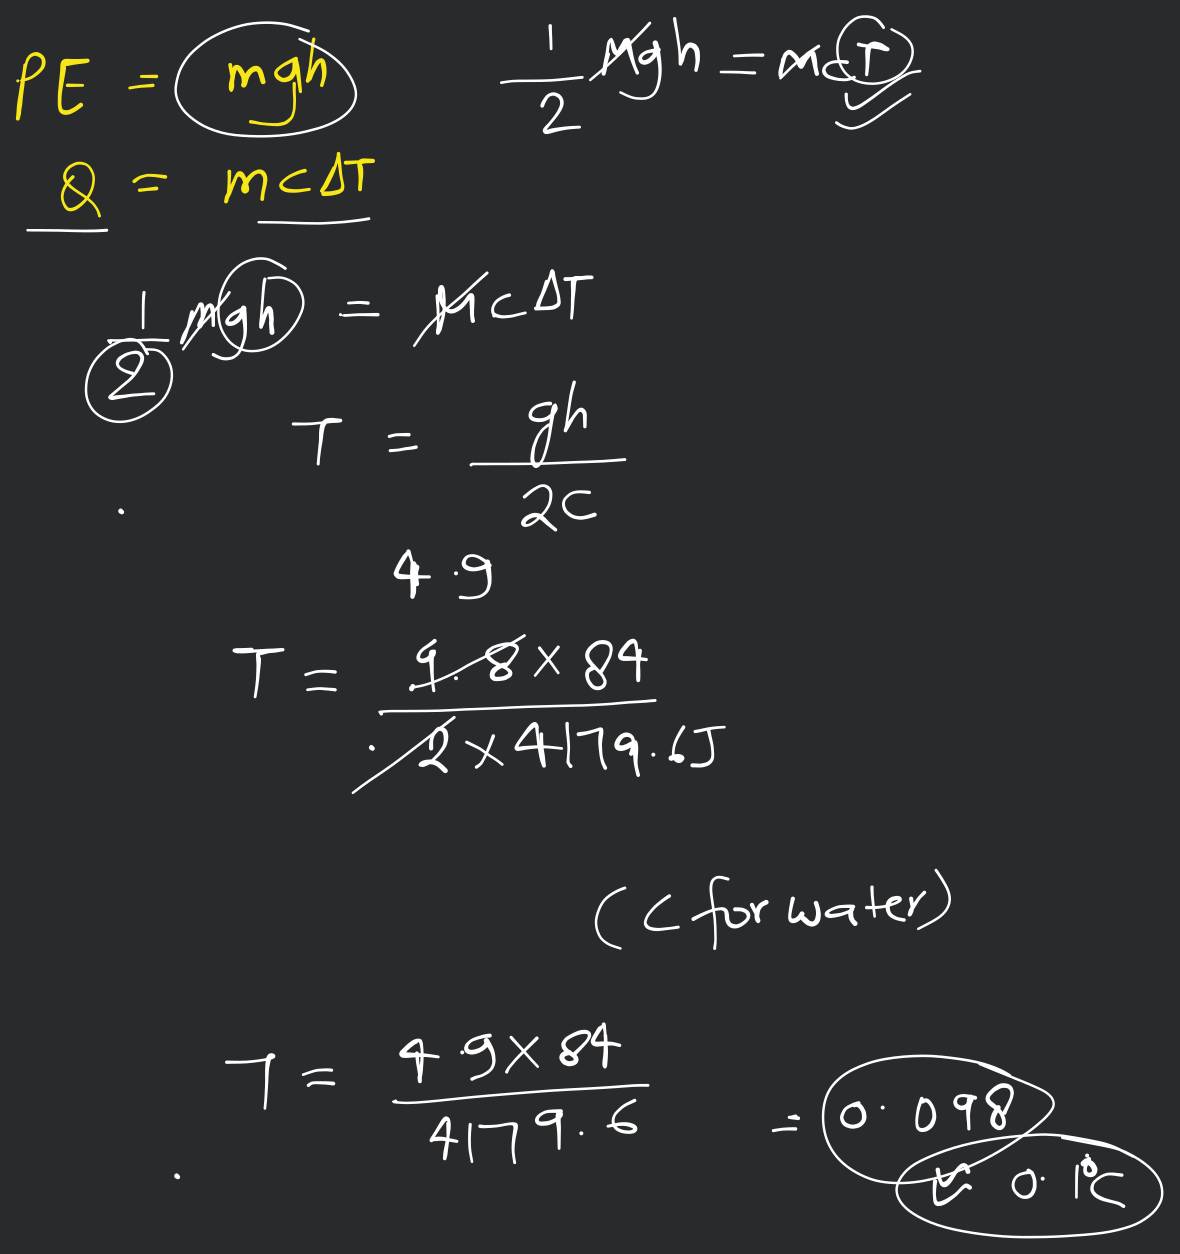 PE = mgh
1/2 mgh = mcT
Q = mcΔT
1/2 mgh = mcΔT
T = gh/2C
4.9
T = 9.8 × 84 / 2 × 4179.6J
(C for water)
T = 4.9 × 84 / 4179.6 = 0.098
0.1°C